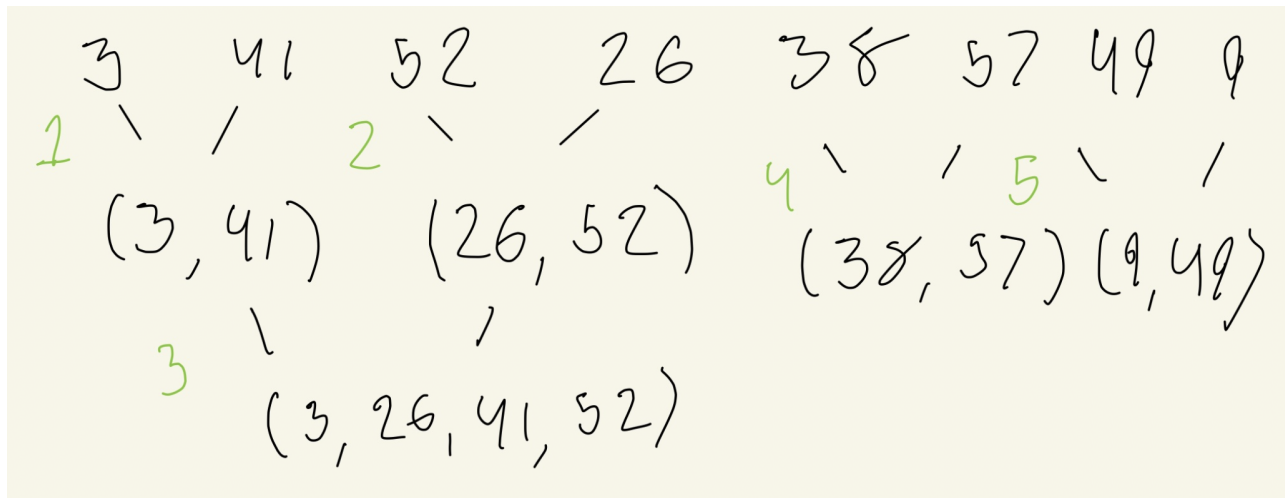 3 41 52 26 38 57 49 9
1 2 4 5
(3, 41) (26, 52) (38, 57) (9, 49)
3
(3, 26, 41, 52)